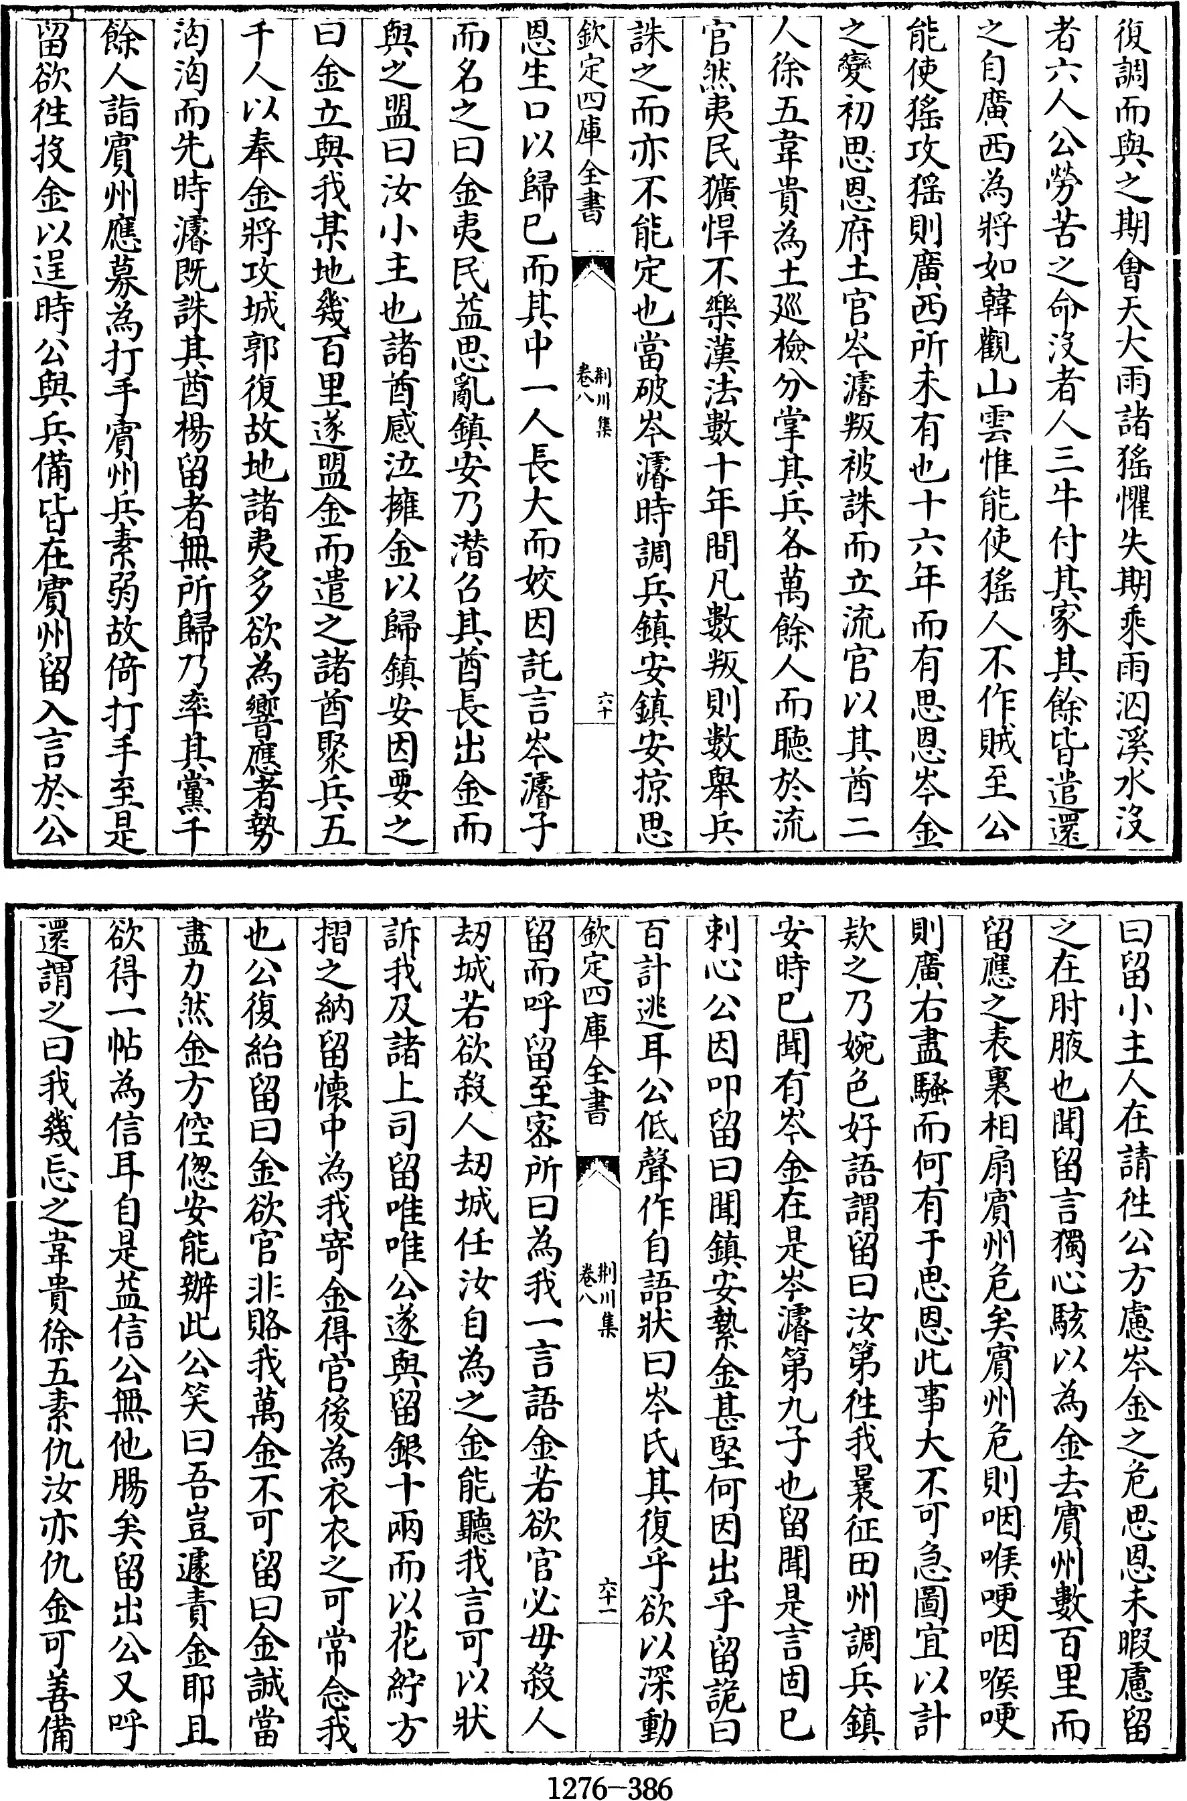 復調而與之期會天大雨諸猺懼失期乘雨泅溪水沒
者六人公勞苦之命沒者人三牛付其家其餘皆遣還
之自廣西為將如韓觀山雲惟能使猺人不作賊至公
能使猺攻猺則廣西所未有也十六年而有思恩岑金
之變初思恩府土官岑濬叛被誅而立流官以其酋二
人徐五韋貴為土廵檢分掌其兵各萬餘人而聽於流
官然夷民獷悍不樂漢法數十年間凡數叛則數舉兵
誅之而亦不能定也當破岑濬時調兵鎮安鎮安掠思
欽定四庫全書
荆川集
卷八
六十
恩生口以歸已而其中一人長大而姣因託言岑濬子
而名之曰金夷民益思亂鎮安乃潛召其酋長出金而
與之盟曰汝小主也諸酋感泣擁金以歸鎮安因要之
曰金立與我某地幾百里遂盟金而遣之諸酋聚兵五
千人以奉金將攻城郭復故地諸夷多欲為響應者勢
洶洶而先時濬既誅其酋楊留者無所歸乃率其黨千
餘人詣賓州應募為打手賓州兵素弱故倚打手至是
留欲徃投金以逞時公與兵備皆在賓州留入言於公
曰留小主人在請徃公方慮岑金之危思恩未暇慮留
之在肘腋也聞留言獨心駭以為金去賓州數百里而
留應之表裏相扇賓州危矣賓州危則咽喉哽咽喉哽
則廣右盡騷而何有于思恩此事大不可急圖宜以計
欵之乃婉色好語謂留曰汝第徃我曩征田州調兵鎮
安時已聞有岑金在是岑濬第九子也留聞是言固已
刺心公因叩留曰聞鎮安縶金甚堅何因出乎留詭曰
百計逃耳公低聲作自語狀曰岑氏其復乎欲以深動
欽定四庫全書
荆川集
卷八
六十一
留而呼留至密所曰為我一言語金若欲官必毋殺人
刼城若欲殺人刼城任汝自為之金能聽我言可以狀
訴我及諸上司留唯唯公遂與留銀十兩而以花紵方
摺之納留懷中為我寄金得官後為衣衣之可常念我
也公復紿留曰金欲官非賂我萬金不可留曰金誠當
盡力然金方倥偬安能辦此公笑曰吾豈遽責金耶且
欲得一帖為信耳自是益信公無他腸矣留出公又呼
還謂之曰我幾忘之韋貴徐五素仇汝亦仇金可善備
1276-386